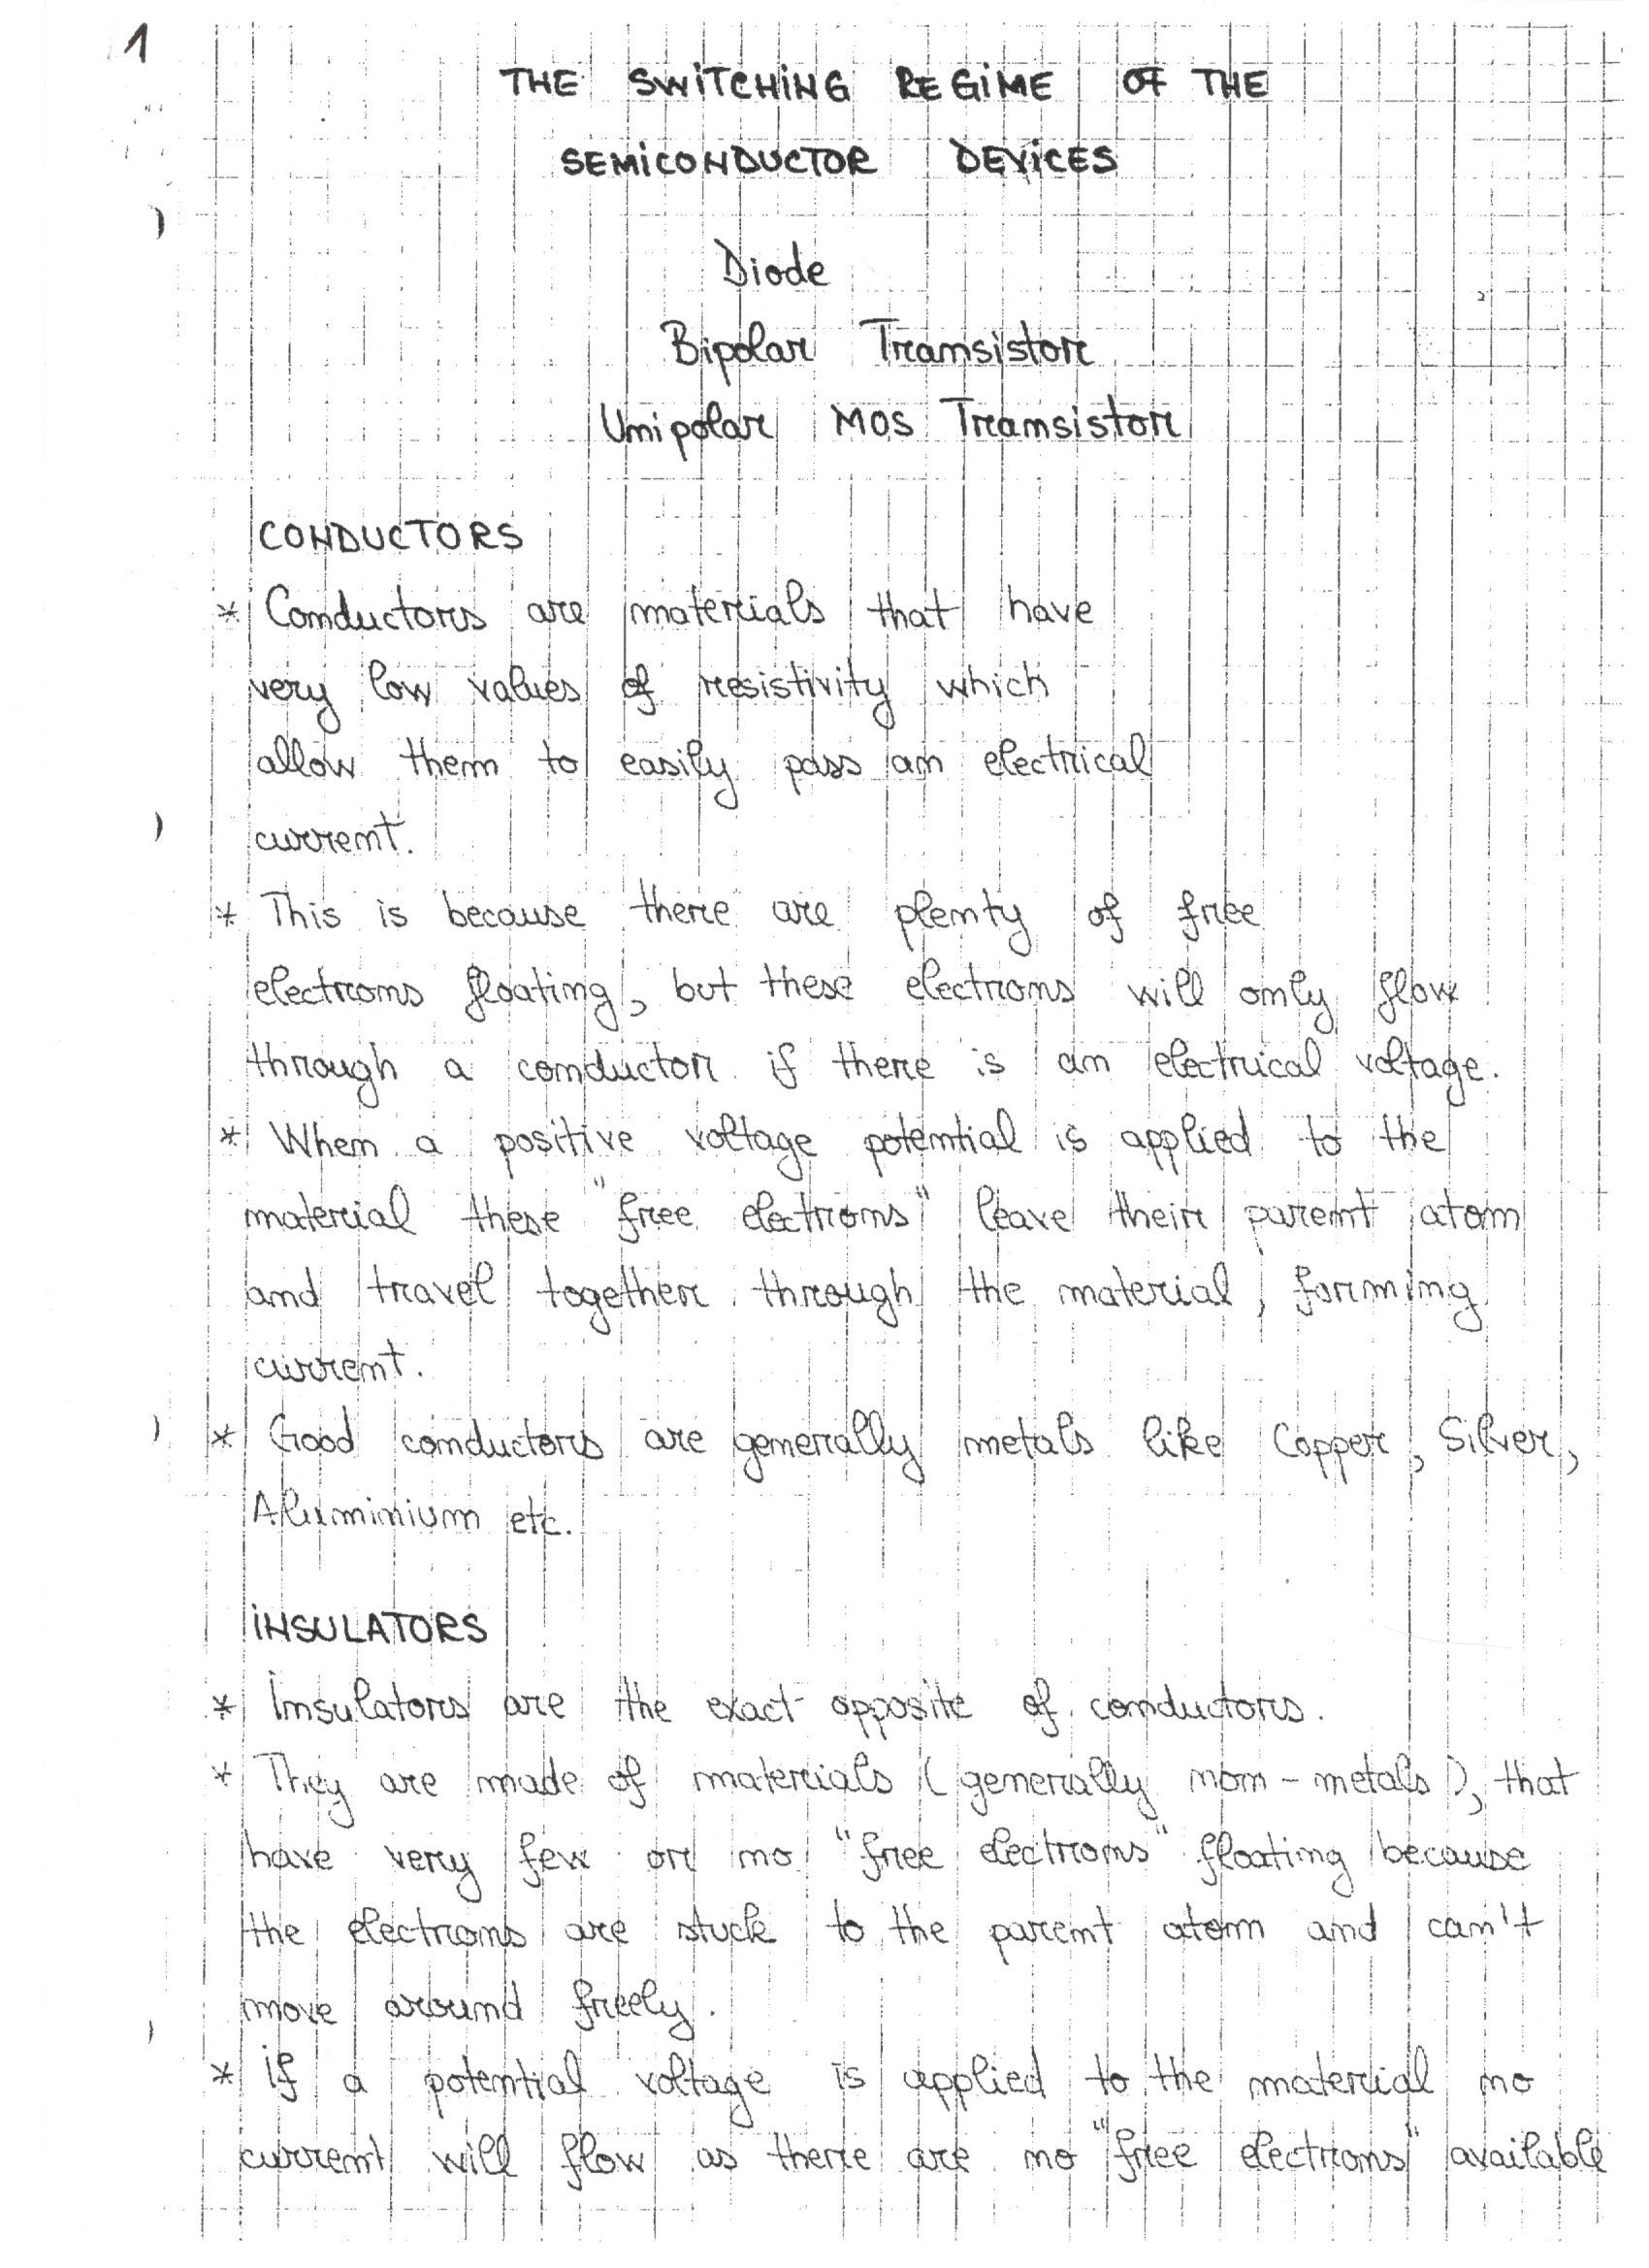 1
THE SWITCHING REGIME OF THE
SEMICONDUCTOR DEVICES
Diode
Bipolar Transistor
Unipolar MOS Transistor
CONDUCTORS
* Conductors are materials that have
very low values of resistivity which
allow them to easily pass an electrical
current.
* This is because there are plenty of free
electrons floating, but these electrons will only flow
through a conductor if there is an electrical voltage.
* When a positive voltage potential is applied to the
material these "free electrons" leave their parent atom
and travel together through the material, forming
current.
* Good conductors are generally metals like Copper, Silver,
Aluminium etc.
INSULATORS
* Insulators are the exact opposite of conductors.
* They are made of materials (generally non-metals), that
have very few or no "free electrons" floating because
the electrons are stuck to the parent atom and can't
move around freely.
* If a potential voltage is applied to the material no
current will flow as there are no "free electrons" available